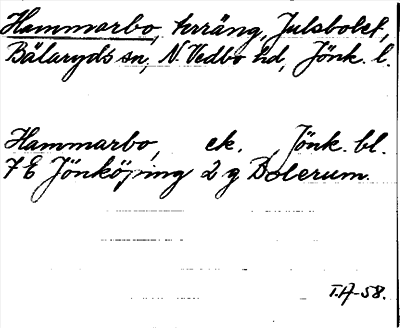 Hammarbo, terräng, Julsbolet,
Bälaryds sn, N. Vedbo hd, Jönk. l.
Hammarbo, ek. Jönk. bl.
7 E Jönköping 2 g Bolerum.
T.H-58.